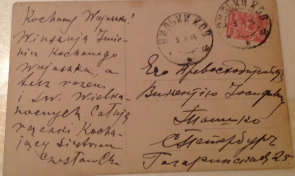 Kochany Wujaszku!
Winszuję Imienin
Kochanego
Wujaszka, a
też razem
i św. Wielka-
nocnych Całuję
rączki Kocha-
jący Siostrzan
Его Превосходительству
Викентію Іосифовичу
С Петербургъ
Гагаринская 25